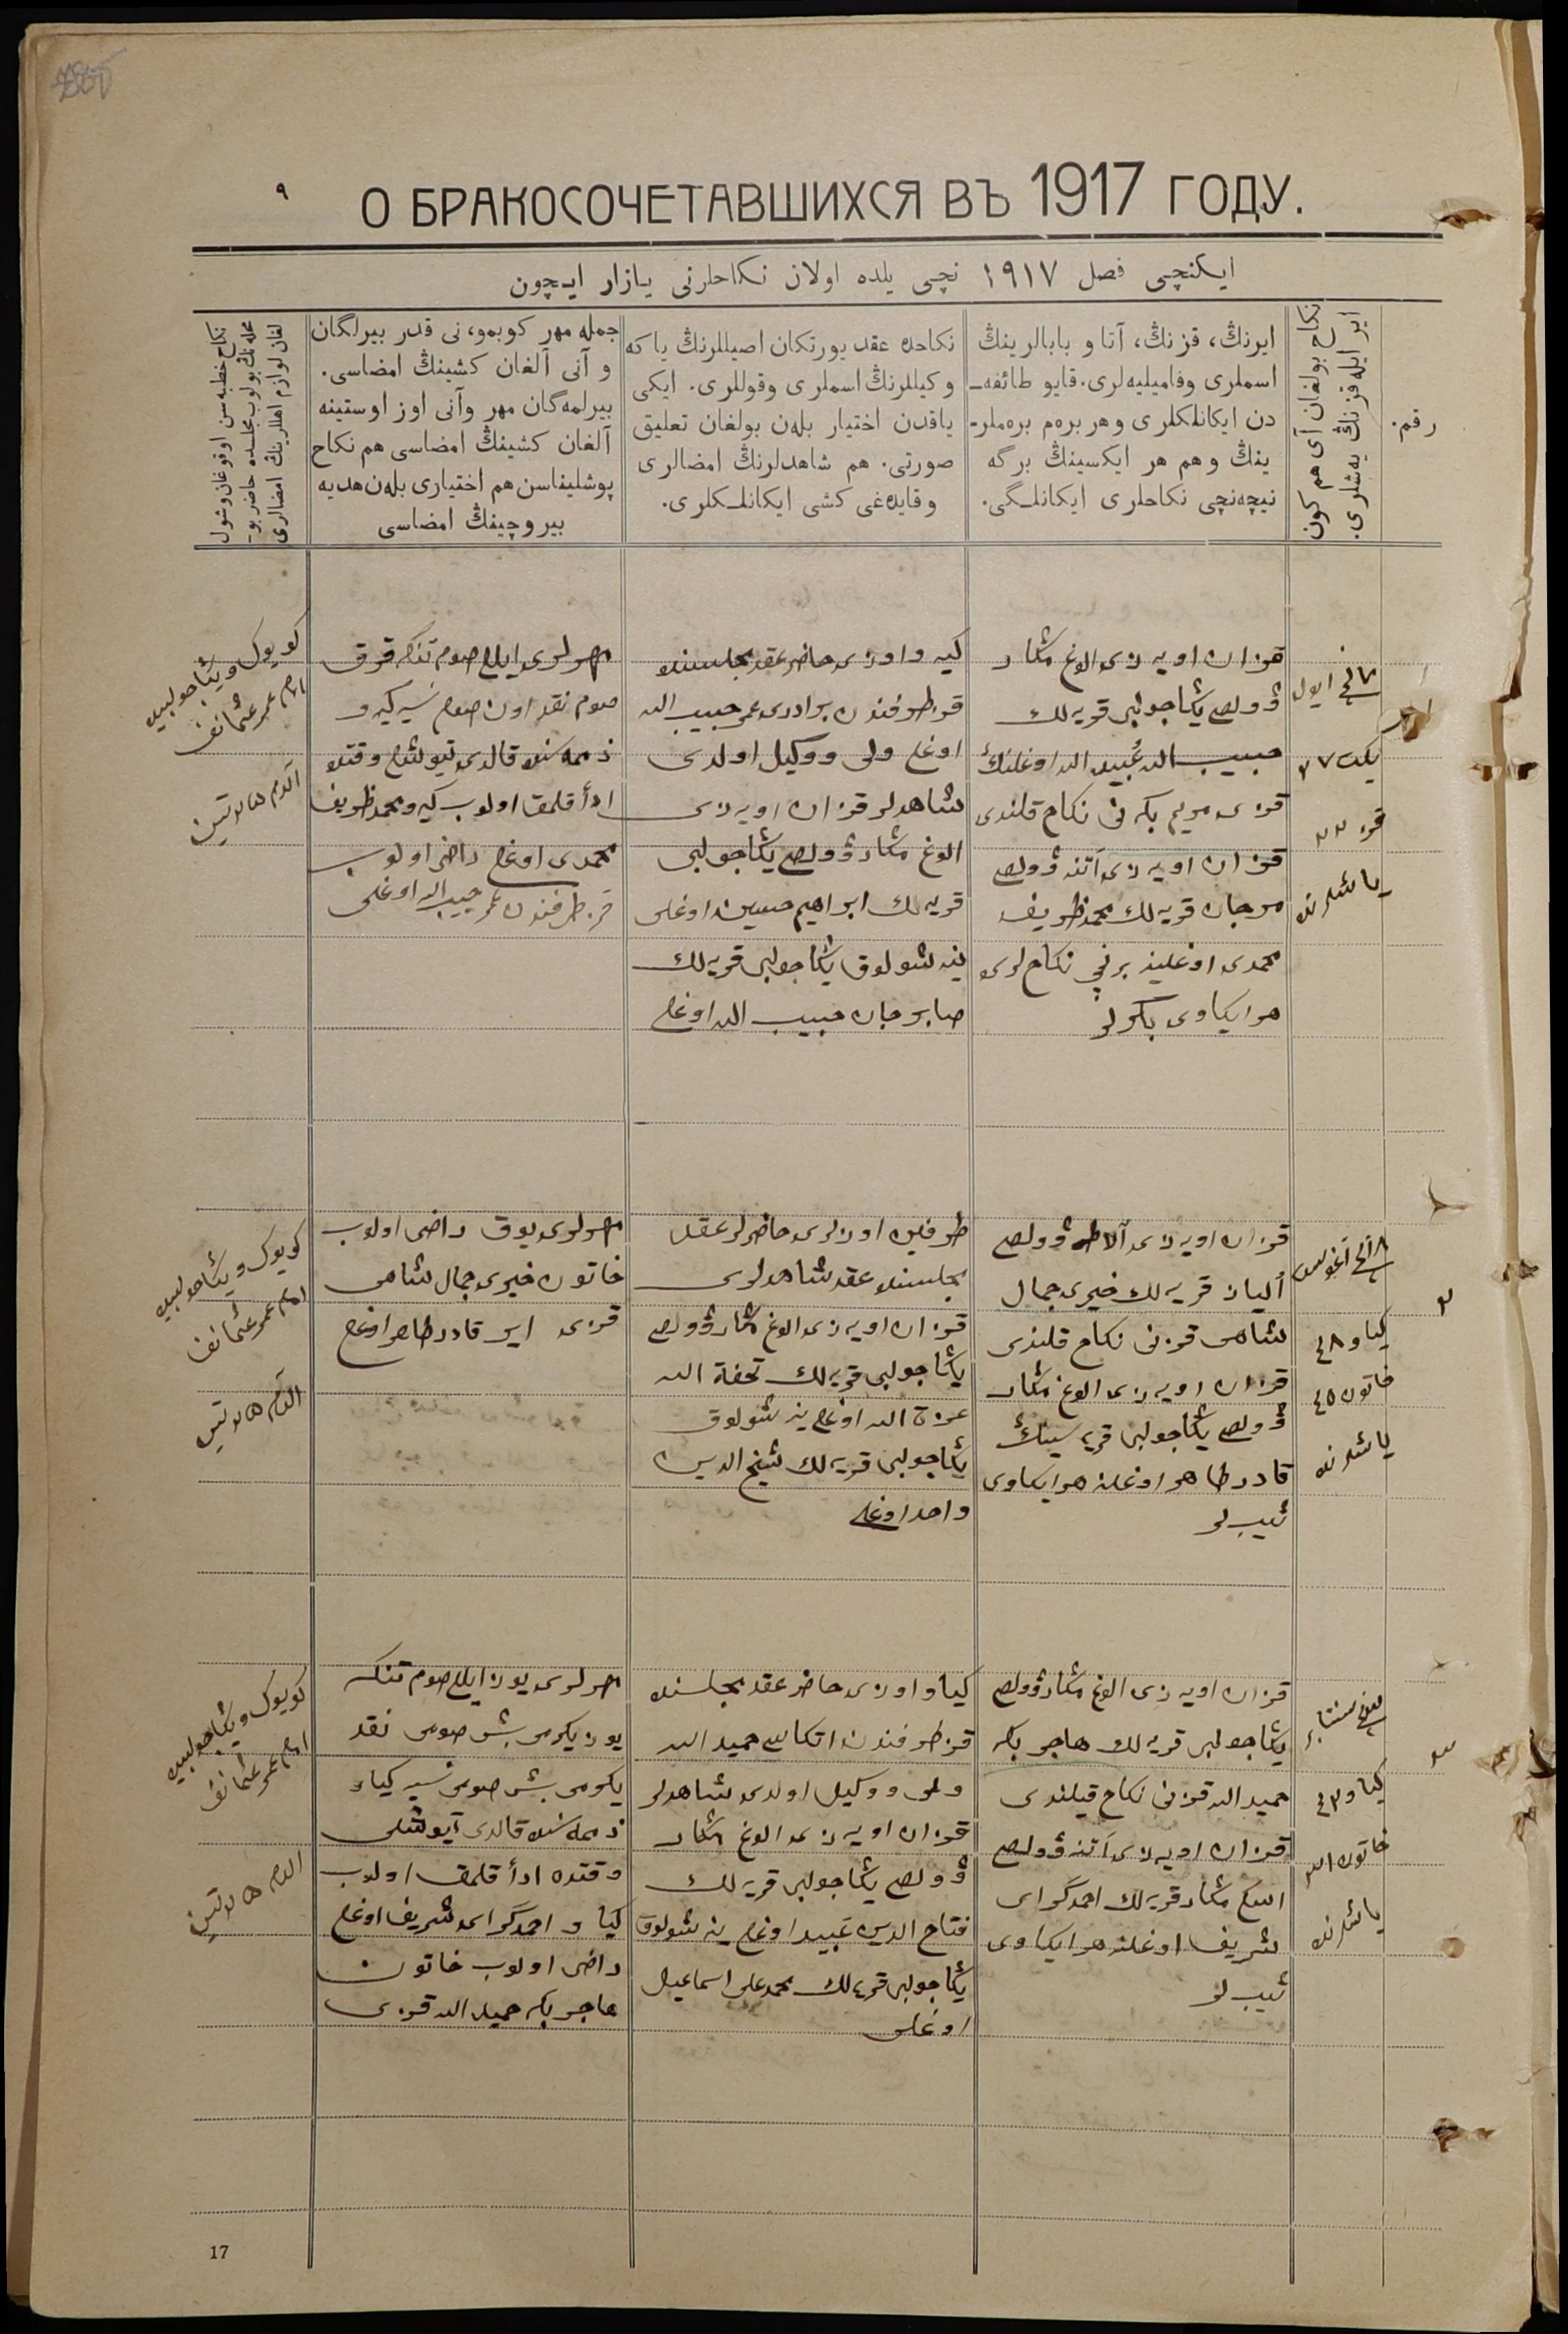 ٩
О БРАКОСОЧЕТАВШИХСЯ ВЪ 1917 ГОДУ.
ایکنچی فصل ١٩١٧ نچی یلده اولان نکاحلرنی یازار ایچون
رقم.
نکاح بولغان آی هم کون
ایر ایله قزنڭ یه‌شلری.
ایرنڭ، قزنڭ، آتا و بابالرینڭ
اسملری وفامیلیه‌لری. قایو طائفه‌ـ
دن ایکانلکلری و هر بره‌م بره‌ملرـ
ینڭ و هم هر ایکسینڭ برگه
نیچه‌نچی نکاحلری ایکانلـگی.
نکاحده عقد یورتکان اصیللرنڭ یا که
وکیللرنڭ اسملری وقوللری. ایکی
یاقدن اختیار بلەن بولغان تعلیق
صورتی. هم شاهدلرنڭ امضالری
وقایده‌غی کشی ایکانلـکلری.
جمله مهر کوبمو، نی قدر بیرلگان
و آنی آلغان کشینڭ امضاسی.
بیرلمه‌گان مهر وآنی اوز اوستینه
آلغان کشینڭ امضاسی هم نکاح
پوشلیناسن هم اختیاری بلەن هدیه
بیروچینڭ امضاسی
نکاح خطبه‌سن اوقوغان وشول
محله‌نڭ بولوب مجلسده حاضر بوـ
لغان لوازم اهللرینڭ امضالری
١
ایول
یکت ٢٧
قز ٢٢
یاشلرنده
قزان اویه‌زی الوغ مشکار
ۋولصی یڭاجولبی قریه‌لك
حبیب الله عبید الله اوغلنڭ
قزی مریم بکه‌نی نکاح قلندی
قزان اویه‌زی آتنه ۋولصی
مرجان قریه‌لك محمد ظریف
محمدی اوغلینه برنچی نکاحلری
هر ایکاوی بکرلر
کیه و اوزی حاضر عقد مجلسنده
قز طرفندن برادری عمر حبیب الله
اوغلی ولی و وکیل اولدی
شاهدلر قزان اویه‌زی
الوغ مشکار ۋولصی یڭاجولبی
قریه‌لك ابراهیم حسین اوغلی
ینه شولوق یڭاجولبی قریه‌لك
صابرجان حبیب الله اوغلی
مهرلری ایللی صوم تنکه قرق
صوم نقد اون صوم نسیه کیه و
ذمه‌سنده قالدی تیوشلی وقتده
ادأ قلمق اولوب کیه و محمد ظریف
محمدی اوغلی راضی اولوب
قز طرفندن عمر حبیب الله اوغلی
امام عمر عثمانف
٢
کیاو ٤٨
خاتون ٤٥
یاشلرنده
قزان اویه‌زی آلاط ۋولصی
قریه‌لك خیری جمال
شاهی قزنی نکاح قلندی
قزان اویه‌زی الوغ مشکار
ۋولصی یڭاجولبی قریه‌سینڭ
قادر طاهر اوغلنه هر ایکاوی
ثیب‌لر
طرفین اوزلری حاضرلر عقد
مجلسنده عقد شاهدلری
قزان اویه‌زی الوغ مشکار ۋولصی
یڭاجولبی قریه‌لك تحفة الله
عزة الله اوغلی ینه شولوق
یڭاجولبی قریه‌لك شیخ الدین
واحد اوغلی
مهرلری یوق راضی اولوب
خاتون خیری جمال شاهی
قزی ایر قادر طاهر اوغلی
امام عمر عثمانف
٣
کیاو ٤٣
یاشلرنده
قزان اویه‌زی الوغ مشکار ۋولصی
یڭاجولبی قریه‌لك هاجر بکه
حمید الله قزنی نکاح قیلندی
قزان اویه‌زی آتنه ۋولصی
مشکار قریه‌لك احمد گرای
شریف اوغلنه هر ایکاوی
ثیب‌لر
کیاو اوزی حاضر عقد مجلسنده
قز طرفندن اتکاسی حمید الله
ولی و وکیل اولدی شاهدلر
قزان اویه‌زی الوغ مشکار
ۋولصی یڭاجولبی قریه‌لك
فتاح الدین عبید اوغلی ینه شولوق
یڭاجولبی قریه‌لك محمد علی اسماعیل
اوغلی
مهرلری یوز ایللی صوم تنکه
یوز یکرمی بش صومی نقد
یکرمی بش صومی نسیه کیاو
ذمه‌سنده قالدی تیوشلی
وقتده ادأ قلمق اولوب
کیاو احمد گرای شریف اوغلی
راضی اولوب خاتون
هاجر بکه حمید الله قزی
امام عمر عثمانف
17